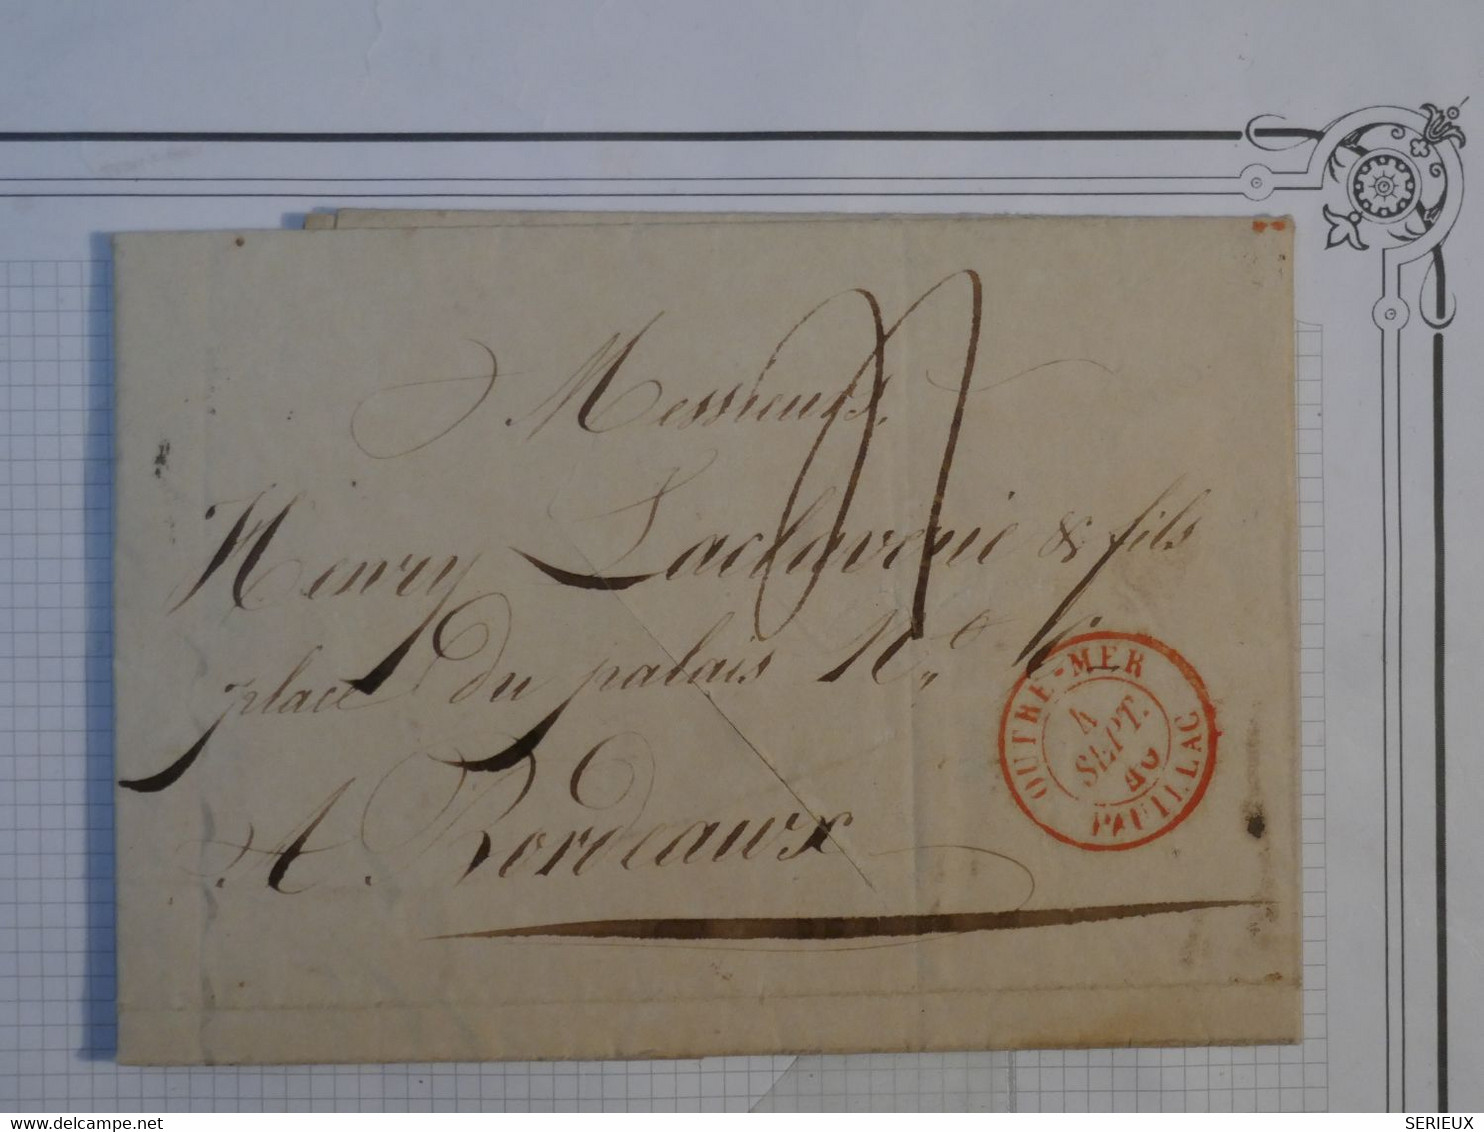 Messieurs.
Henry Laclaverie & fils
place du palais N.
A Bordeaux
OUTRE-MER
4
SEPT.
PAUILLAC
www.delcampe.net
SERIEUX